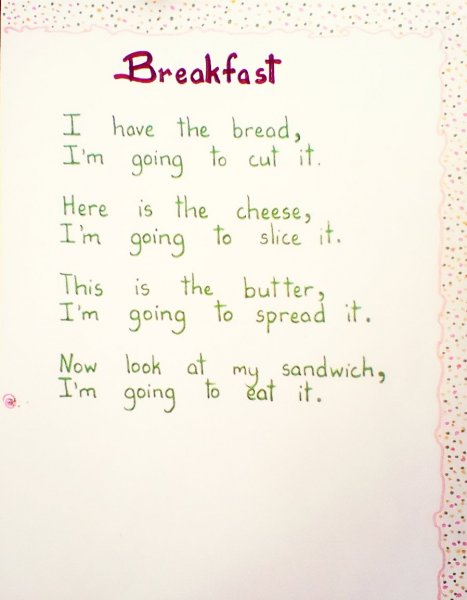 Breakfast
I have the bread,
I'm going to cut it.
Here is the cheese,
I'm going to slice it.
This is the butter,
I'm going to spread it.
Now look at my sandwich,
I'm going to eat it.